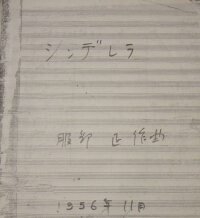 シンデレラ
服部 正 作曲
1956年 11月